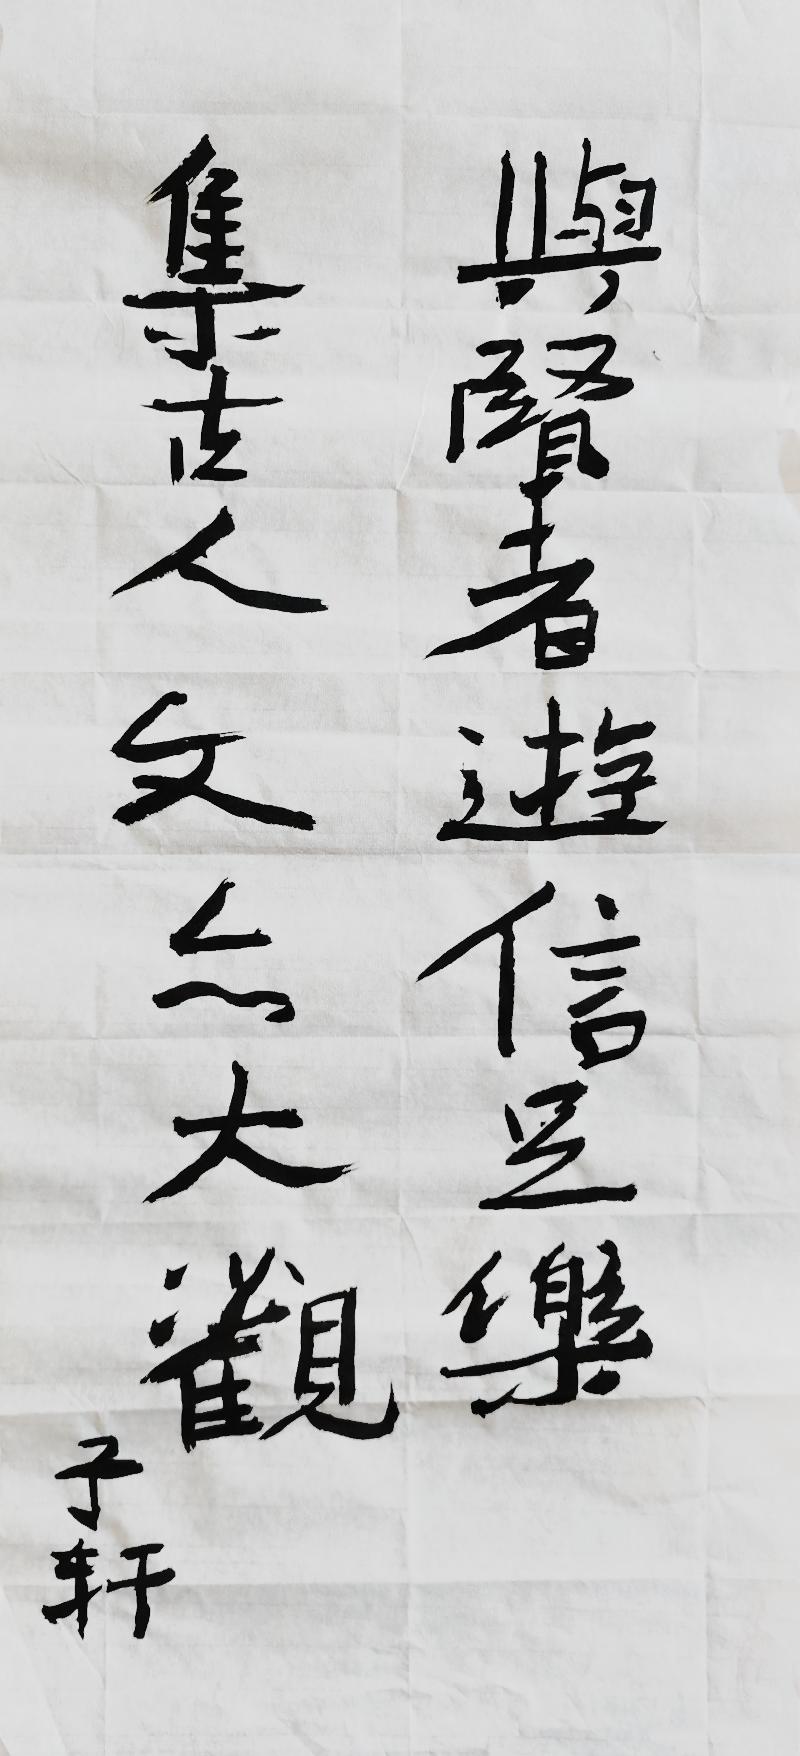 與賢者遊信足樂
集古人文亦大觀
子轩